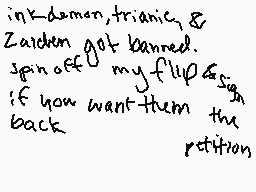 inkdemon, trianic, &
Zaiden got banned.
spin off my flip & sign
if you want them the
back petition